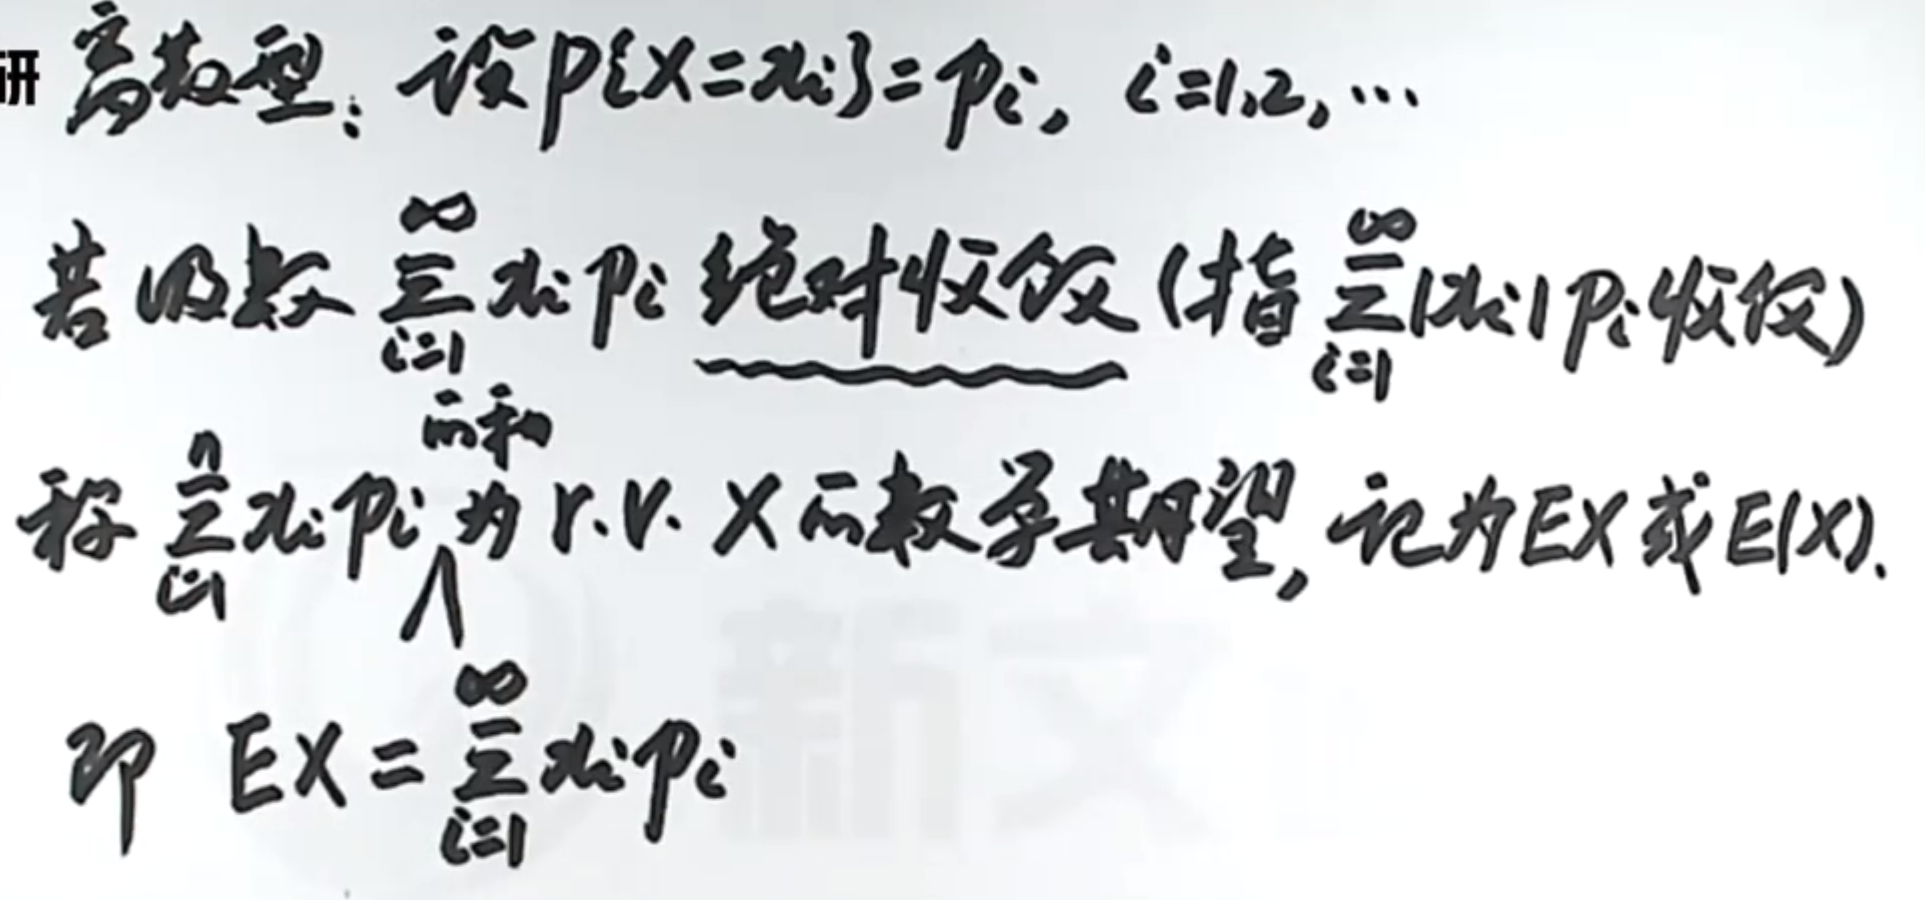 研 离散型：设P{X=xᵢ}=pᵢ, i=1,2,…
若级数 ∑_{i=1}^{∞} xᵢpᵢ 绝对收敛 (指 ∑_{i=1}^{∞} |xᵢ|pᵢ 收敛)
称 ∑_{i=1}^{n} xᵢpᵢ 的和 为 r.v. X 的数学期望, 记为EX或E(X).
即 EX = ∑_{i=1}^{∞} xᵢpᵢ
新文